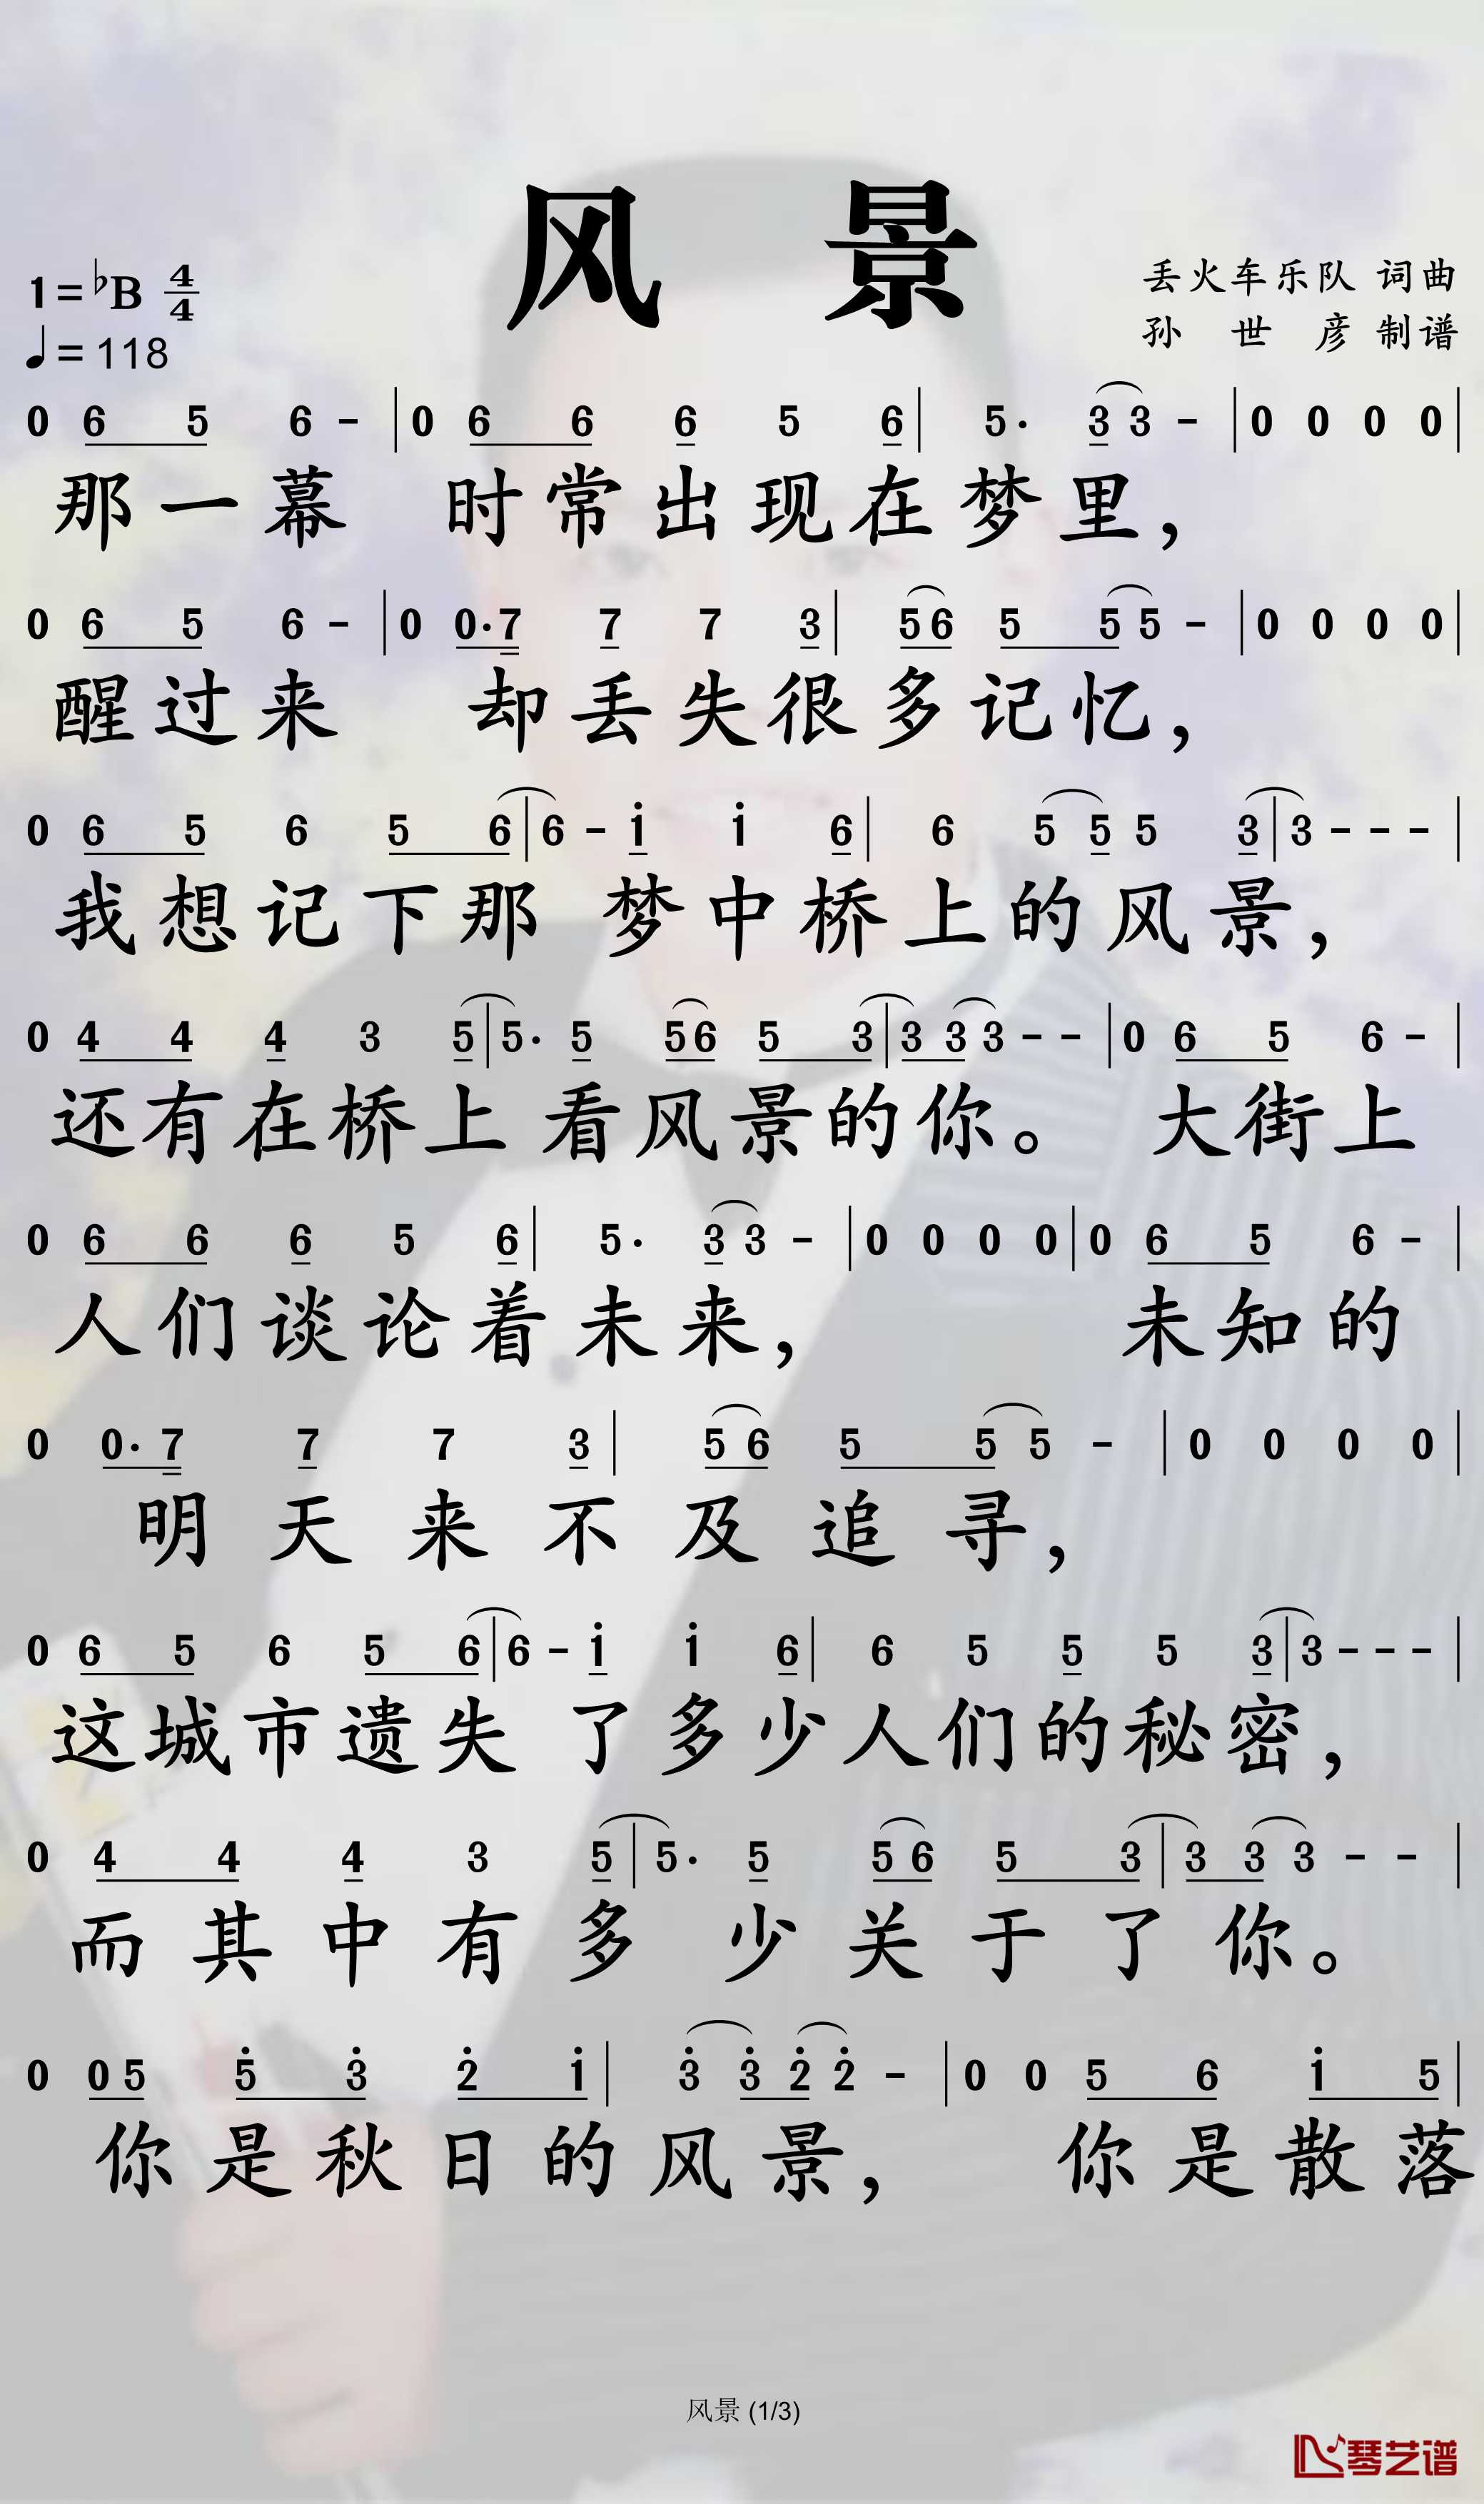 风 景
1=♭B 4/4
♩=118
丢火车乐队 词曲
孙 世 彦 制谱
0 6 5 6 - | 0 6 6 6 5 6 | 5· 3 3 - | 0 0 0 0 |
那一幕 时常出现在梦里，
0 6 5 6 - | 0 0·7 7 7 3 | 5 6 5 5 5 - | 0 0 0 0 |
醒过来 却丢失很多记忆，
0 6 5 6 5 6 | 6 - i i 6 | 6 5 5 5 3 | 3 - - - |
我想记下那 梦中桥上的风景，
0 4 4 4 3 5 | 5· 5 5 6 5 3 | 3 3 3 - - | 0 6 5 6 - |
还有在桥上 看风景的你。 大街上
0 6 6 6 5 6 | 5· 3 3 - | 0 0 0 0 | 0 6 5 6 - |
人们谈论着未来， 未知的
0 0·7 7 7 3 | 5 6 5 5 5 - | 0 0 0 0 |
明天来不及追寻，
0 6 5 6 5 6 | 6 - i i 6 | 6 5 5 5 3 | 3 - - - |
这城市遗失 了多少人们的秘密，
0 4 4 4 3 5 | 5· 5 5 6 5 3 | 3 3 3 - - |
而其中有多 少关于了你。
0 0 5 5̇ 3̇ 2̇ i | 3̇ 3̇ 2̇ 2̇ - | 0 0 5 6 i 5 |
你是秋日的风景， 你是散落
风景 (1/3)
琴艺谱